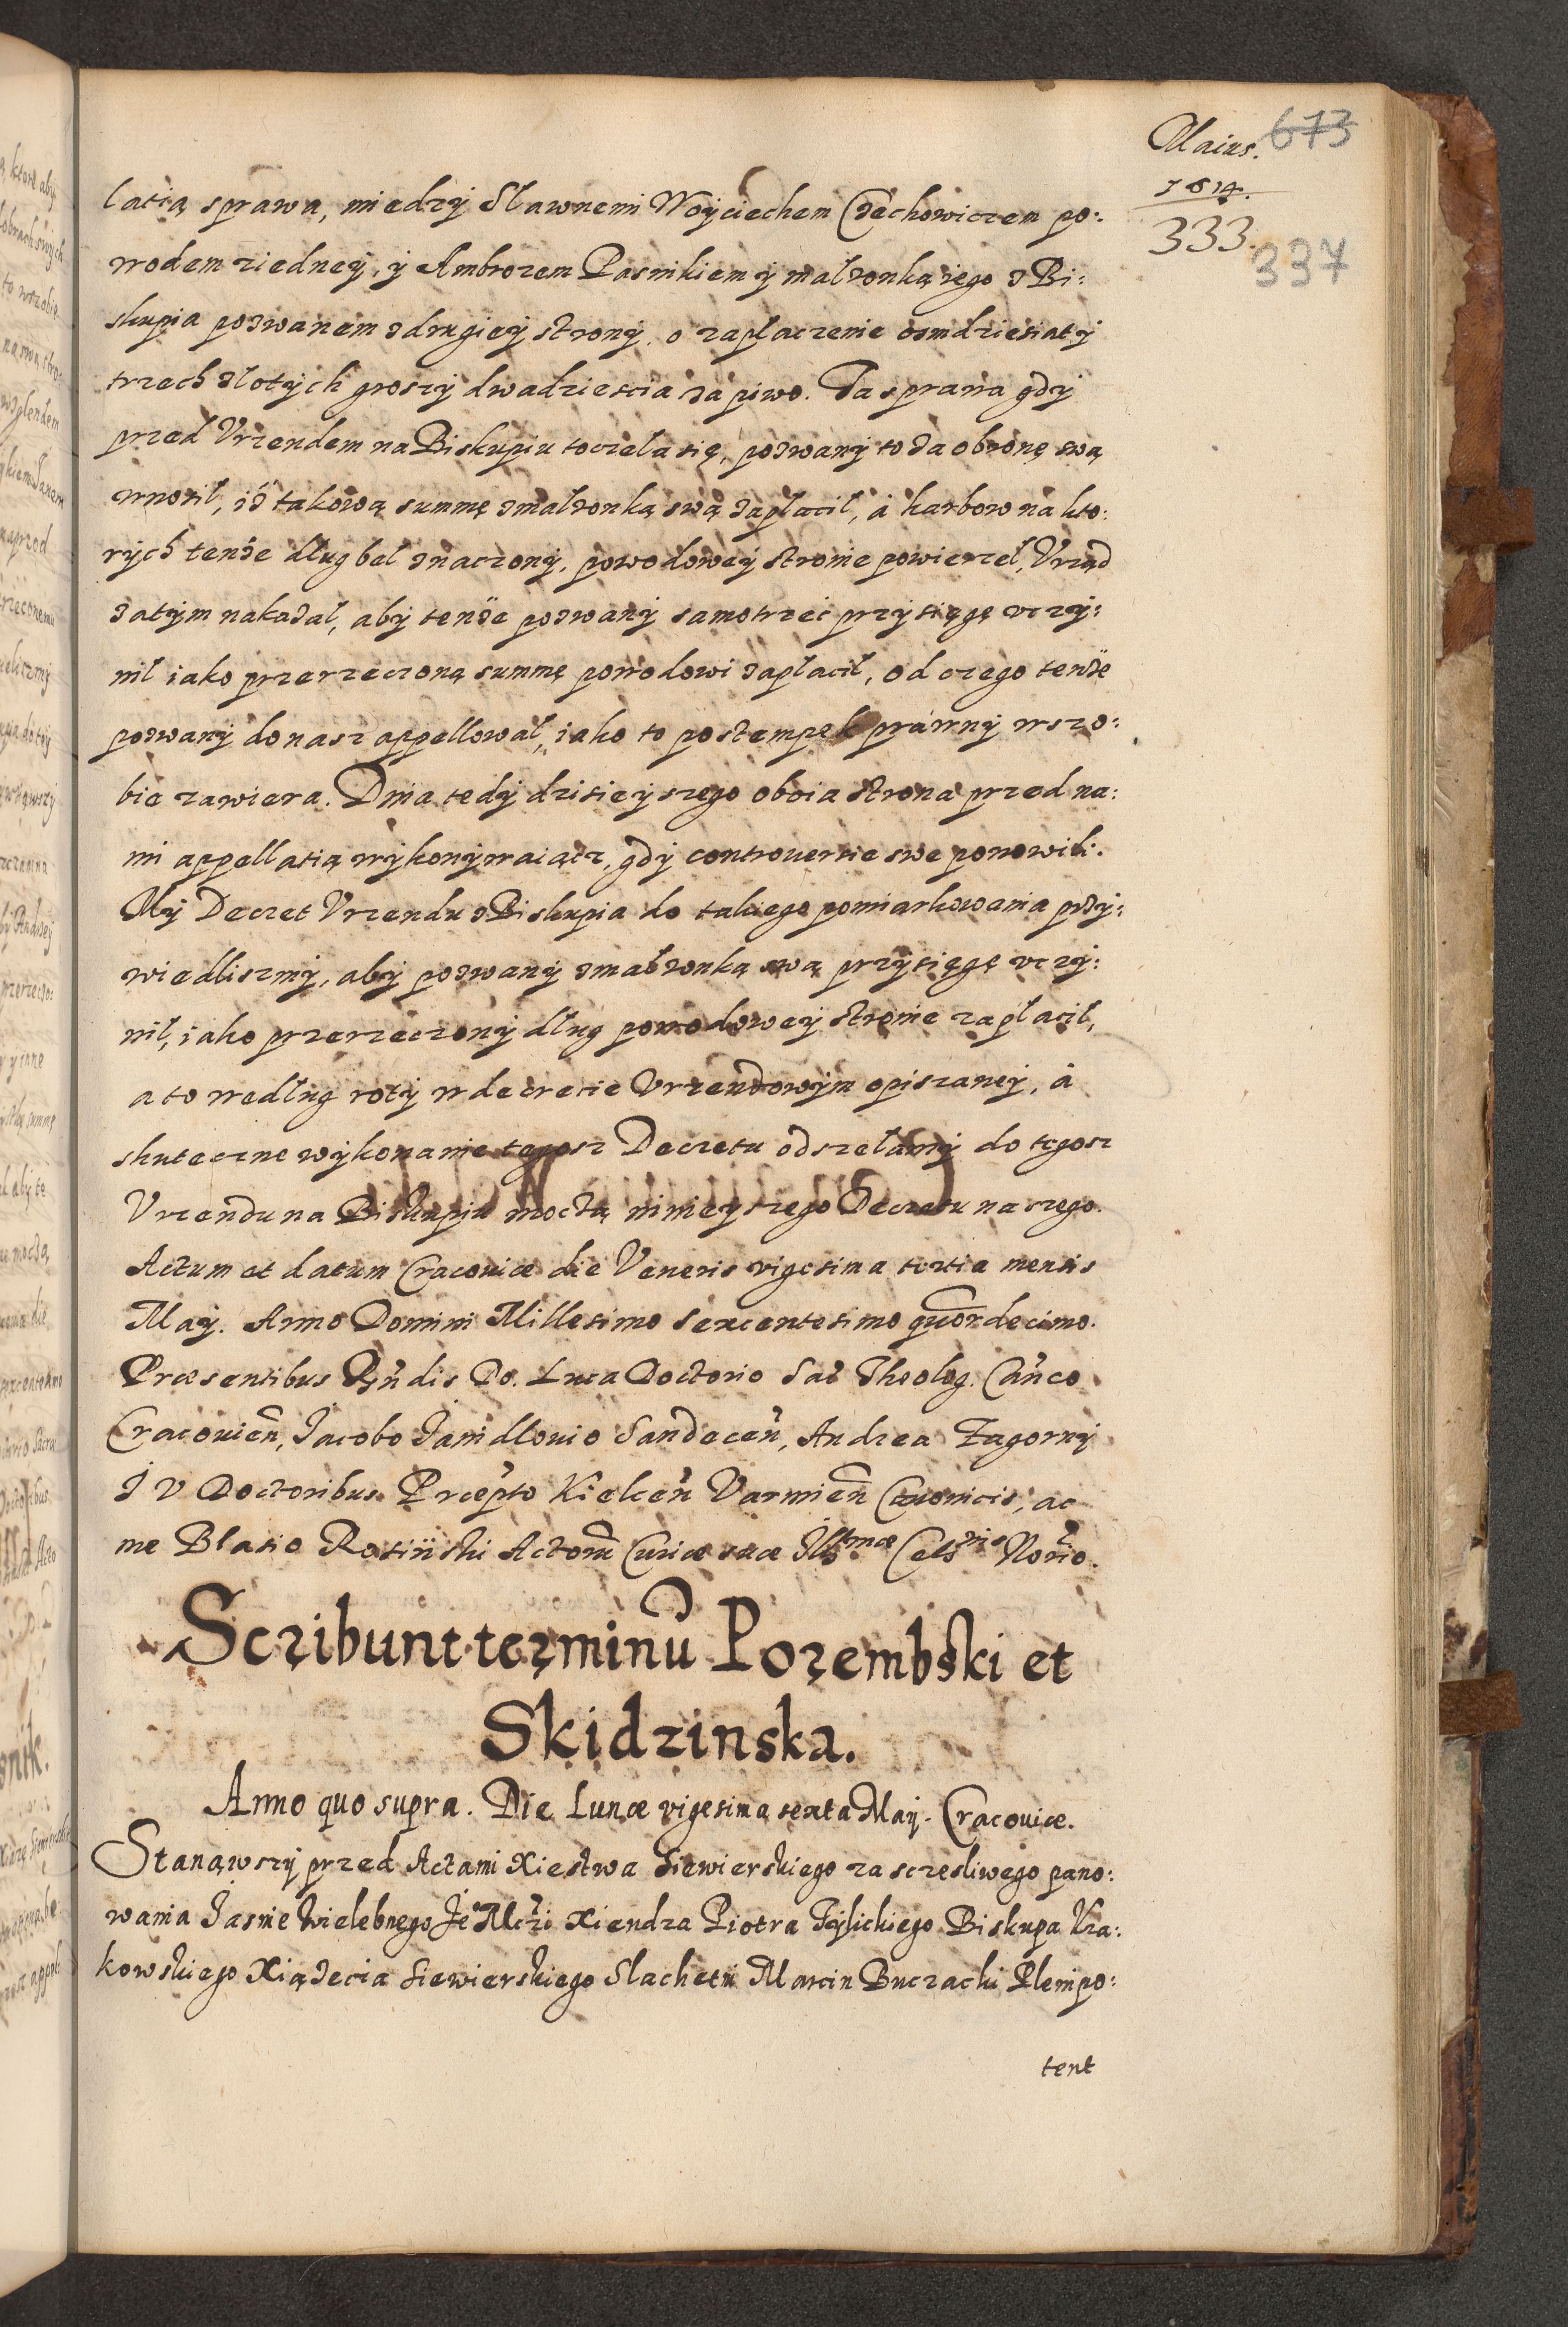 Maius. 673
1614.
333. 337
latią sprawa, miedzÿ Sławnemi Woÿciechem Czechowiczem po:
wodem ziedneÿ, ÿ Ambrozem Pasnikiem ÿ małzonką iego z Bi:
skupia pozwanem z drugieÿ stronÿ, o zapłaczenie osmdziesiat ÿ
trzech złotÿch groszÿ dwadziescia za piwo. Ta sprawa gdÿ
przed Vrzendem na Biskupiu toczeła się, pozwanÿ to za obronę swą
wnosił, iż takową summę z małzonką swą zapłacił, á karbow na kto:
rÿch tenże dług beł znaczonÿ, powodoweÿ stronie powierzeł, Vrząd
zatÿm nakazał, abÿ tenże pozwanÿ samotrzeć przÿsięgę vczÿ:
nił iako przerzeczoną summę powodowi zapłacił, od czego tenże
pozwanÿ do nasz appellował, iako to postempek prawnÿ w szo:
bie zawiera. Dnia tedÿ dzisieÿszego oboia strona przed na:
mi appellatią wÿkonÿwaiącz, gdÿ controuersie swe ponowili.
Mÿ Decret Vrzendu z Biskupia do takiego pomiarkowania przÿ:
wiedliszmÿ, abÿ pozwanÿ z małzonką swą przÿsięgę vczÿ:
nił, iako przerzeczonÿ dług powodoweÿ stronie zapłacił,
a to wedlug rotÿ w decrecie Vrzendowÿm opiszaneÿ, á
skuteczne wÿkonanie tegosz Decretu odszełamÿ do tegosz
Vrzendu na Biskupiu moczą ninieÿszego Decretu naszego.
Actum et datum Cracouiæ die Veneris vigesima tertia mensis
Maÿ. Anno Domini Millesimo Sexcentesimo quordecimo.
Præsentibus Rñdis Do. Luca Doctorio Sac Theolog. Cañco
Cracouień, Jacobo Janidlouio Sandeceń, Andrea Zagornÿ
J V Doctoribus Præpto Kielceń Varmień Canonicis, ac
me Blasio Rosiński Actorum Curiæ suæ Illsmæ Celsnis Norio.
Scribunt terminũ Porembski et
Skidzinska.
Anno quo supra. Die Lunæ vigesima sexta Maÿ. Cracouiæ.
Stanąwszÿ przed Actami Xiestwa Siewierskiego za sczęsliwego pano:
wania Jasnie Wielebnego Je Mczi Xiendza Piotra Tÿlickiego Biskupa Kra:
kowskiego Xiążecia Siewierskiego Slachetñ Marcin Buczacki Plenipo:
tent